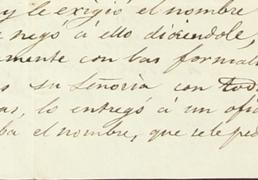 y le exigió el nombre
negó á ello diciendole,
mente con las formali
su Señoria con tod
as, lo entregó á un ofi
ba el nombre, que se le pe